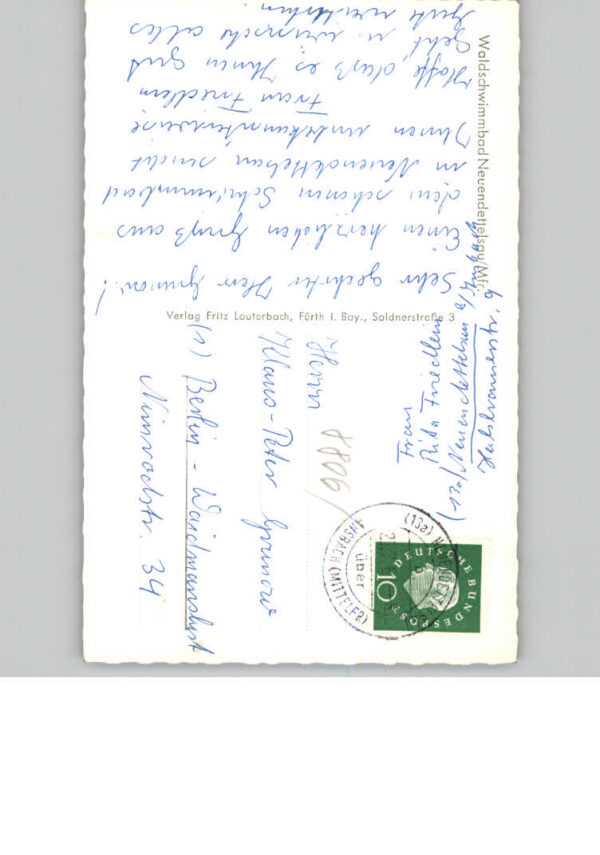 Waldschwimmbad Neuendettelsau/Mfr.
Sehr geehrter Herr Grunow!
Einen herzlichen Gruß aus
dem schönen Schwimmbad
in Neuendettelsau sendet
Ihnen unbekannterweise
Frau Friedlein
Hoffe, daß es Ihnen gut
geht u. wünsche alles
Gute weiterhin.
Verlag Fritz Lauterbach, Fürth i. Bay., Soldnerstraße 3
Frau
Rita Friedlein
(13a) Neuendettelsau
6
8806
Herrn
Klaus-Peter Grunow
(1) Berlin - Waidmannslust
Nimrodstr. 34
DEUTSCHE BUNDESPOST
10
(13a)
über
ANSBACH (MITTELFR)